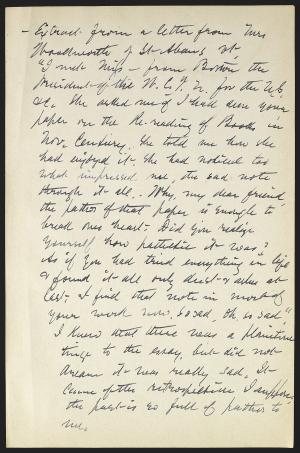 - Extract from a letter from Mrs
Woodworth of St Albans Vt
"I met Miss — from Boston the
president of the W.C.T.U. for the U.S.
&c. She asked me if I had seen your
paper on the Re-reading of Books in
Nov. Century. She told me how she
had enjoyed it. She had noticed too
what impressed me, the sad note
through it all. Why, my dear friend,
the pathos of that paper is enough to
break one's heart. Did you realize
yourself how pathetic it was?
As if you had tried everything in life
& found it all only dust & ashes at
last. I find that note in most of
your work now, so sad, Oh so sad."
I knew that there was a plaintive
tinge to the essay, but did not
dream it was really sad. It
came of the retrospection I suppose,
the past is so full of pathos to
me.